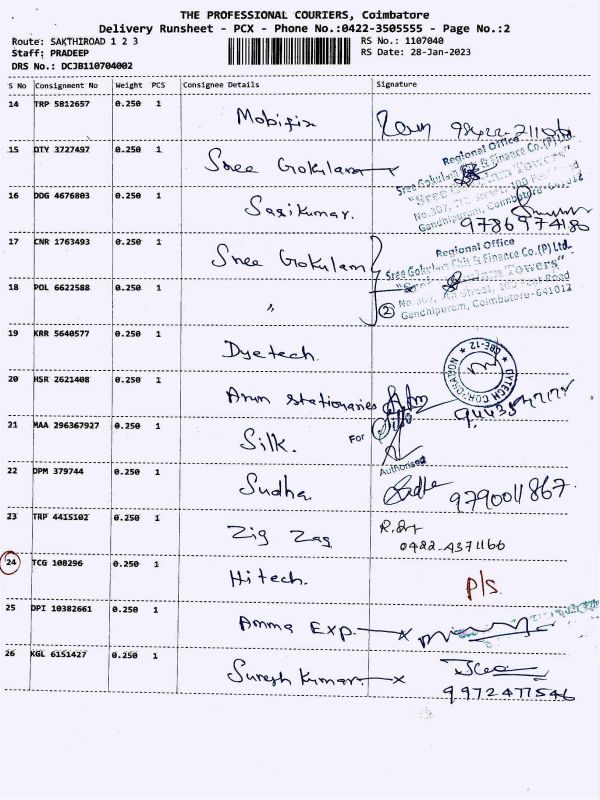 THE PROFESSIONAL COURIERS, Coimbatore
Delivery Runsheet - PCX - Phone No.:0422-3505555 - Page No.:2
Route: SAKTHIROAD 1 2 3
Staff: PRADEEP
DRS No.: DCJB110704002
RS No.: 1107040
RS Date: 28-Jan-2023
S No Consignment No Weight PCS Consignee Details Signature
14 TRP 5812657 0.250 1 Mobifix
15 DTY 3727497 0.250 1 Sree Gokulam
Regional Office
Sree Gokulam Chit & Finance Co.(P) Ltd.
Gandhipuram, Coimbatore-641012
16 DDG 4676803 0.250 1 Sasikumar. 9786974180
17 CNR 1763493 0.250 1 Sree Gokulam
Regional Office
Sree Gokulam Chit & Finance Co.(P) Ltd.
Gandhipuram, Coimbatore-641012
18 POL 6622588 0.250 1 " 2
19 KRR 5640577 0.250 1 Dyetech.
DYTECH CORPORATION * CBE-12 *
20 HSR 2621408 0.250 1 Arun stationaries
21 MAA 296367927 0.250 1 Silk. For
Authorised
22 DPM 379744 0.250 1 Sudha 9790011867.
23 TRP 4415102 0.250 1 Zig Zag 0422-4371166
24 TCG 108296 0.250 1 Hitech. P/S.
25 DPI 10382661 0.250 1 Amma Exp.
26 KGL 6151427 0.250 1 Suresh Kumar. 9972477546